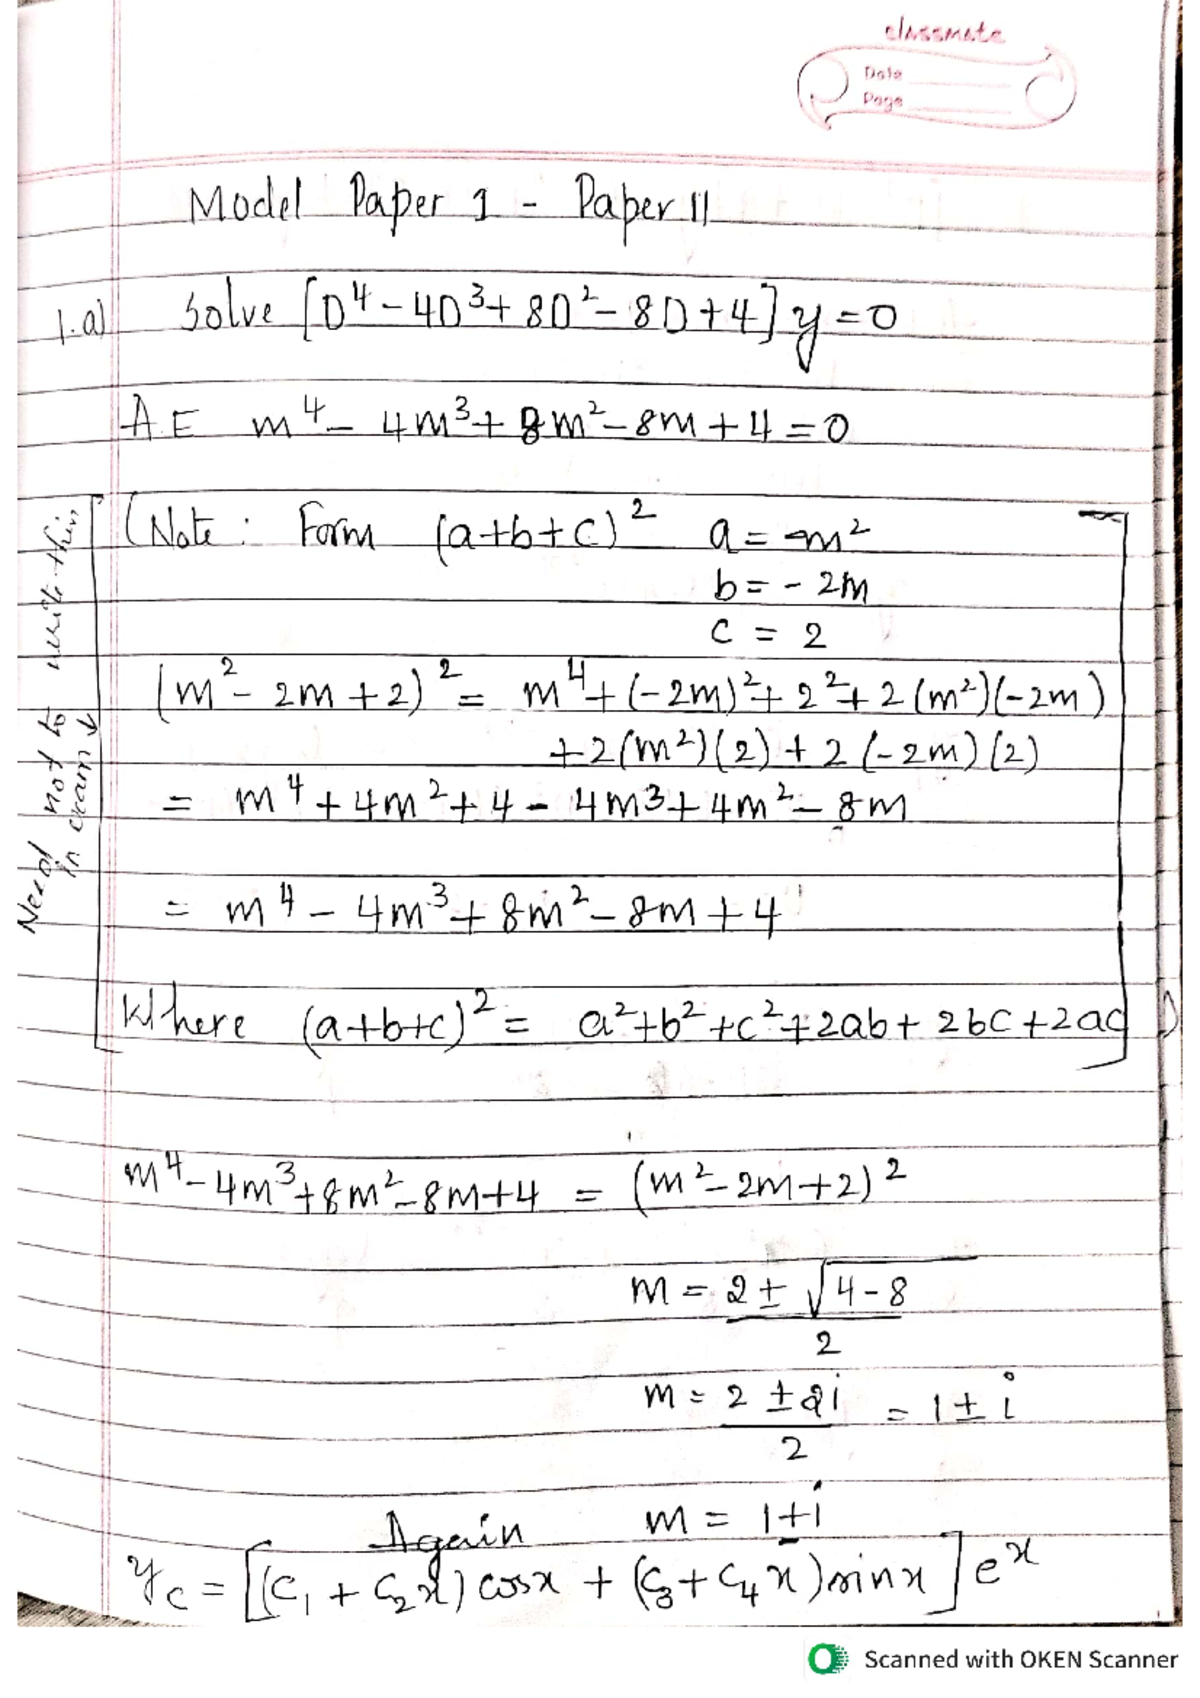 classmate
Date
Page
Model Paper 1 - Paper II
1.a) Solve [D⁴ - 4D³ + 8D² - 8D + 4] y = 0
A.E m⁴ - 4m³ + 8m² - 8m + 4 = 0
(Note : Form (a+b+c)² a = m²
b = - 2m
c = 2
(m² - 2m + 2)² = m⁴ + (-2m)² + 2² + 2(m²)(-2m)
+ 2(m²)(2) + 2(-2m)(2)
= m⁴ + 4m² + 4 - 4m³ + 4m² - 8m
= m⁴ - 4m³ + 8m² - 8m + 4
Where (a+b+c)² = a² + b² + c² + 2ab + 2bc + 2ac )
Need not to write this
in exam
m⁴ - 4m³ + 8m² - 8m + 4 = (m² - 2m + 2)²
m = 2 ± √4-8
2
m = 2 ± 2i = 1 ± i
2
Again m = 1 ± i
y_c = [(c₁ + c₂x) cosx + (c₃ + c₄x) sinx] eˣ
Scanned with OKEN Scanner